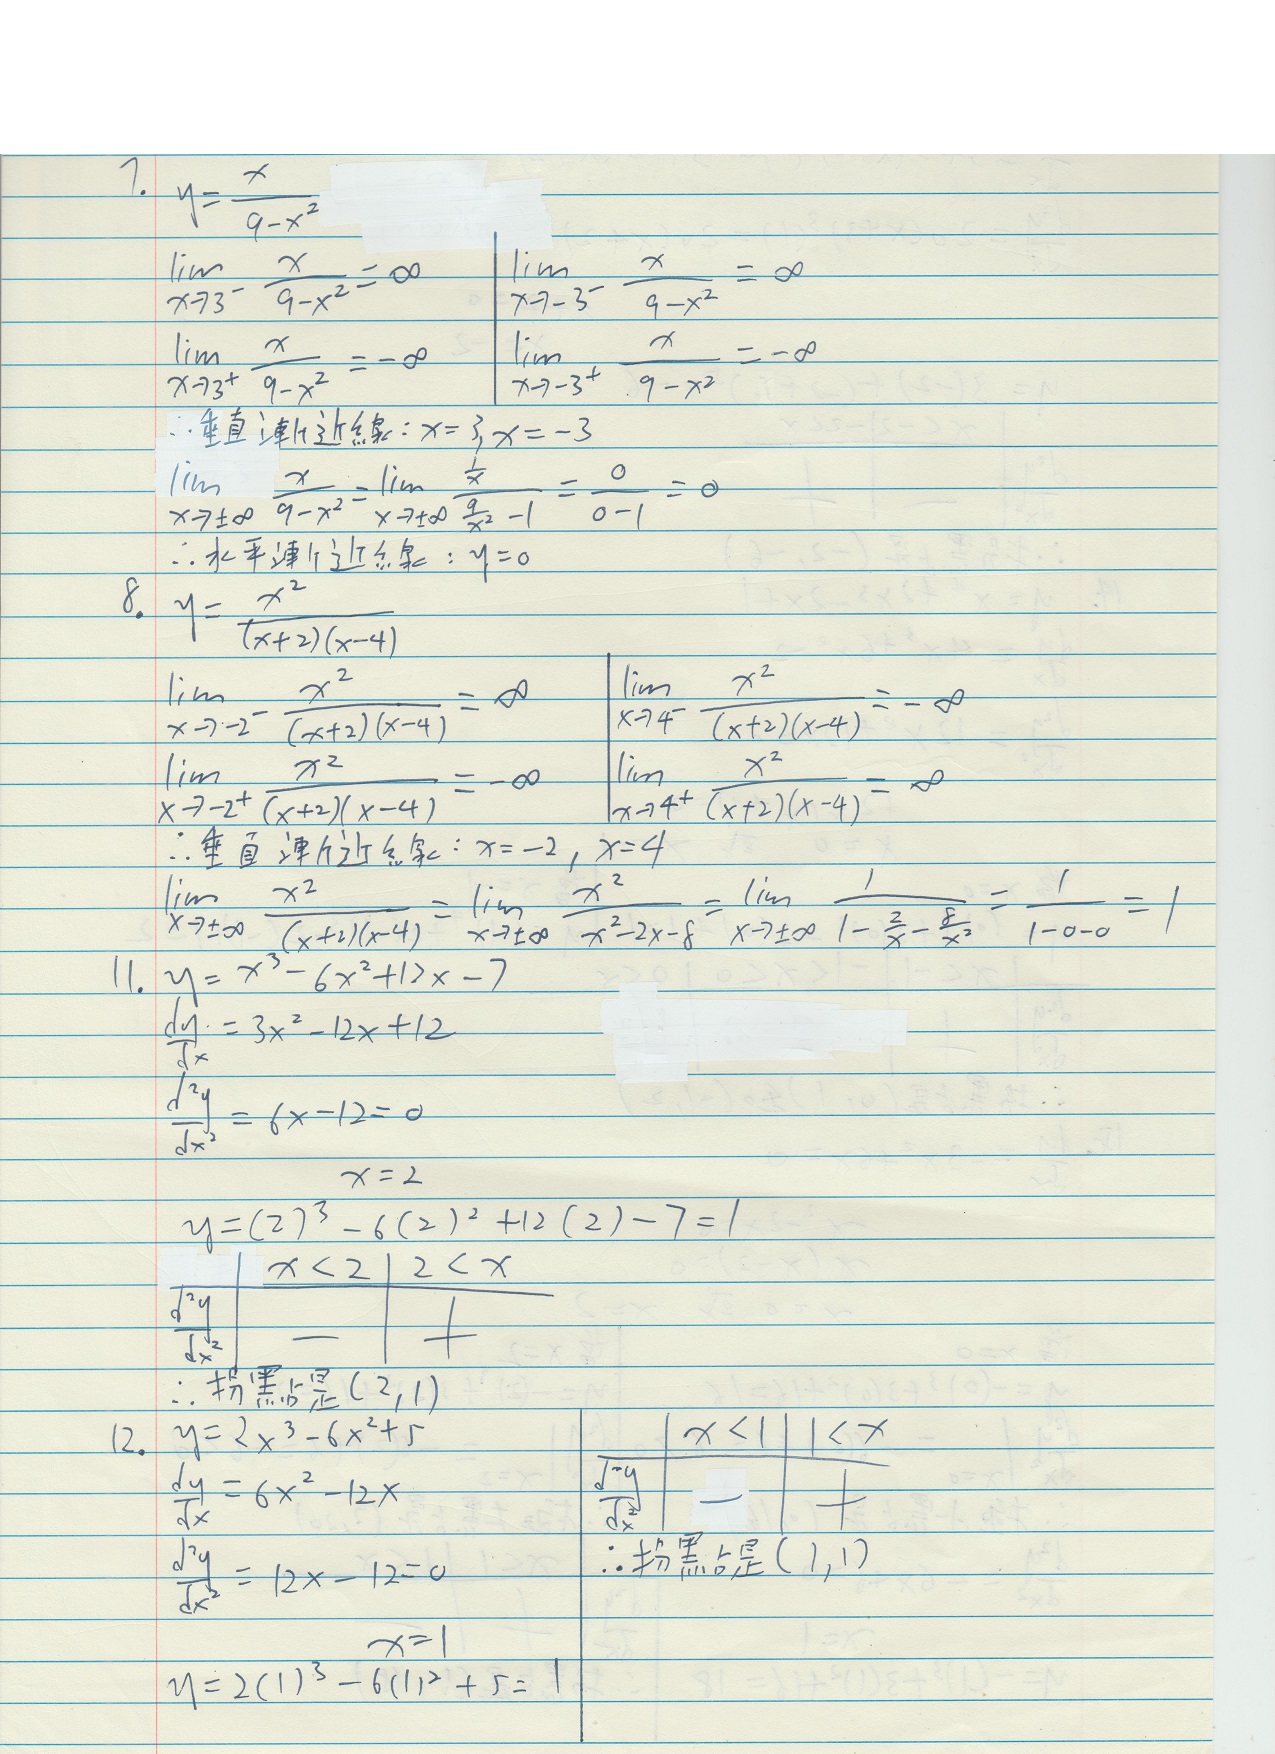 7. y = x/(9-x²)
lim x→3⁻ x/(9-x²) = ∞
lim x→3⁺ x/(9-x²) = -∞
lim x→-3⁻ x/(9-x²) = ∞
lim x→-3⁺ x/(9-x²) = -∞
∴垂直漸近線: x=3, x=-3
lim x→±∞ x/(9-x²) = lim x→±∞ (1/x)/(9/x² -1) = 0/(0-1) = 0
∴水平漸近線: y=0
8. y = x²/((x+2)(x-4))
lim x→-2⁻ x²/((x+2)(x-4)) = ∞
lim x→-2⁺ x²/((x+2)(x-4)) = -∞
lim x→4⁻ x²/((x+2)(x-4)) = -∞
lim x→4⁺ x²/((x+2)(x-4)) = ∞
∴垂直漸近線: x=-2, x=4
lim x→±∞ x²/((x+2)(x-4)) = lim x→±∞ x²/(x²-2x-8) = lim x→±∞ 1/(1 - 2/x - 8/x²) = 1/(1-0-0) = 1
11. y = x³-6x²+12x-7
dy/dx = 3x²-12x+12
d²y/dx² = 6x-12=0
x=2
y=(2)³-6(2)²+12(2)-7=1
x<2 2<x
d²y/dx² − +
∴拐點是(2,1)
12. y=2x³-6x²+5
dy/dx = 6x²-12x
d²y/dx² = 12x-12=0
x=1
y=2(1)³-6(1)²+5=1
x<1 1<x
d²y/dx² − +
∴拐點是(1,1)